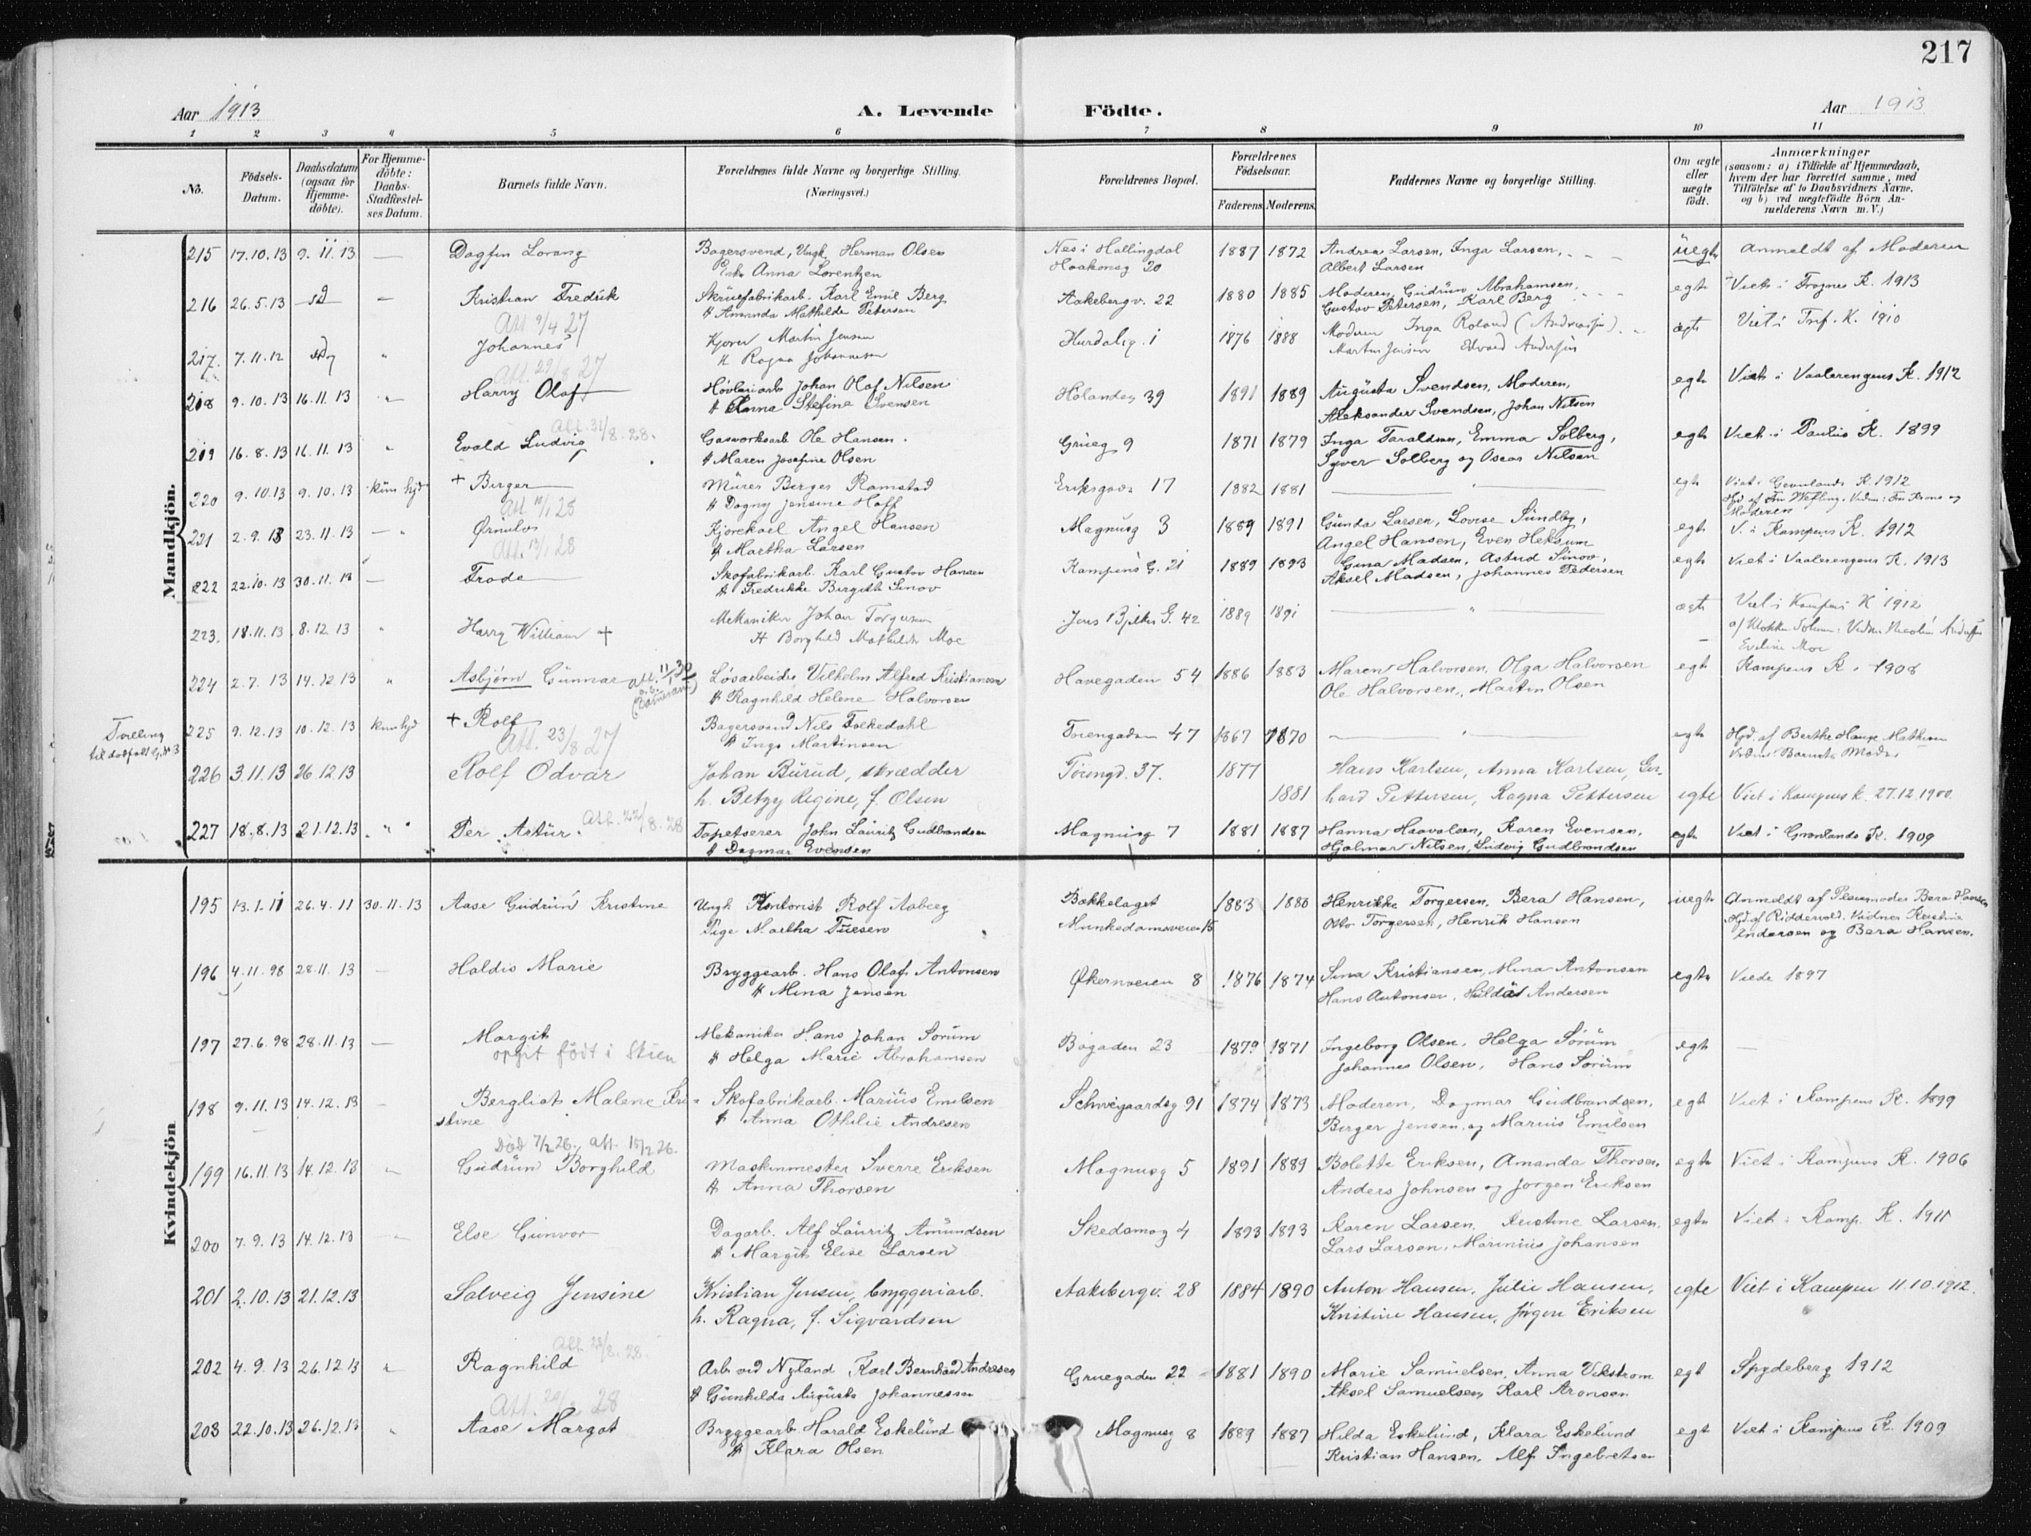 217
Aar 1913 A. Levende Födte. Aar 1913
1 2 3 4 5 6 7 8 9 10 11
No. Födsels-Datum. Daabsdatum (ogsaa for Hjemme-döbte). For Hjemme-döbte: Daabs-Stadfæstel-ses Datum. Barnets fulde Navn. Forældrenes fulde Navne og borgerlige Stilling. (Næringsvei.) Forældrenes Bopæl. Forældrenes Födselsaar. Faderens Moderens Faddernes Navne og borgerlige Stilling. Om ægte eller uægte födt. Anmærkninger (saasom: a) i Tilfælde af Hjemmedaab, hvem der har forrettet samme, med Tilföielse af to Daabsvidners Navne, og b) ved uægtefödte Börn An-melderens Navn m. V.)
Mandkjön.
215 17.10.13 9.11.13 — Dagfin Lorang Bagersvend, Ungk. Herman Olsen Nes i Hallingdal 1887 1872 Andrea Larsen, Inga Larsen, uegte Anmeldt af Moderen
Anna Lorentzen Haakonsg 20 Albert Larsen
216 26.5.13 — Kristian Fredrik Skruefabrikarb. Karl Emil Berg Aakebergv. 22 1880 1885 Moderen, Gudrun Abrahamsen, egte Viet i Frogner K. 1913
H Amanda Mathilde Petersen Gustav Petersen, Karl Berg
Att 9/4 27
217. 7.11.12 Johannes Kjører Martin Jensen Hurdalsg. 1 1876 1888 Moderen Inga Roland (Andersen) ægte Viet i Tref. K. 1910
H Ragna Johannesen Martin Jensen Edvard Andersen
27
218 9.10.13 16.11.13 Harry Olaf Høvleriarb Johan Olaf Nilsen Hølandsg 39 1891 1889 Augusta Svendsen, Moderen, egte Viet i Vaalerengens K. 1912
H Anna Stefine Svensen Aleksander Svendsen, Johan Nilsen
Att. 31/8.28.
219 16.8.13 16.11.13 Evald Ludvig Gasverksarb Ole Hansen. Grueg 9 1871 1879 Inga Taraldsen, Emma Solberg, egte Viet i Paulus K. 1899
H Maren Josefine Olsen Syver Solberg og Oscar Nilsen
220 9.10.13 9.10.13 kun hjd + Birger Murer Berger Ramstad Eriksgade 17 1882 1881 — egte Viet i Grønlands K. 1912
H Dagny Jensine Hoff Moderen
Att 10/1 28
221 2.9.13 23.11.13 — Ørnulv Kjørekarl Angel Hansen Magnusg 3 1889 1891 Gunda Larsen, Lovise Sundby, egte V. i Kampens K. 1912
H Martha Larsen Angel Hansen, Even Heksum
Att. 13/1 28
222 22.10.13 30.11.13 — Frode Skofabrikarb. Karl Gustav Hansen Kampens G. 21 1889 1893 Gina Madsen, Astrid Sinov, egte Viet i Vaalerengens K. 1913
H Fredrikke Birgitte Sinov Aksel Madsen, Johannes Pedersen
223. 18.11.13 8.12.13 Harry William + Mekaniker Johan Torgersen Jens Bjelkes G. 42 1889 1891 — ægte Viet i Kampens K 1912
H Borghild Mathilde Moe Eveline Moe
224 2.7.13 14.12.13 Asbjørn Gunnar Løsarbeider Vilhelm Alfred Kristiansen Havegaden 54 1886 1883 Maren Halvorsen, Olga Halvorsen egte Kampens K. 1908
H Ragnhild Helene Halvorsen Ole Halvorsen, Martin Olsen
Tvilling til dødfødt G. No 3
225 9.12.13 10.12.13 kun hjd + Rolf Bagersvend Nils Folkedahl Tøiengaden 47 1867 1870 — egte Hjd. af Berthe Hauge Mathisen
H Inga Martinsen Vidne: Barnets Moder
Att. 23/8 27
226 3.11.13 26 12 13 Rolf Odvar Johan Burud, skrædder Tøiengd. 37. 1877 Hans Karlsen, Anna Karlsen, Ger-
h. Betzy Regine, f. Olsen 1881 hard Pettersen, Ragna Pettersen egte Viet i Kampens k. 27.12.1900.
Att. 22/8.28
227 18.8.13 21.12.13 Per Artur Tapetserer John Lauritz Gudbrandsen Magnusg 7 1881 1887 Hanna Haavalsen, Karen Evensen, egte Viet i Grønlands K. 1909
H Dagmar Evensen Hjalmar Nilsen, Ludvig Gudbrandsen
Kvindekjön
195 13.1.11 26.4.11 30.11.13 Aase Gudrun Kristine Ungk Kontorist Rolf Aaberg Bækkelaget 1883 1886 Henrikke Torgersen, Bera Hansen, uegte Anmeldt af Pleiemoder Bera Hansen
Pige Martha Tuesen Munkedamsveien 15 Otto Torgersen, Henrik Hansen Hjd. af Riddervold. Vidner Kristine
Andersen og Bera Hansen.
196 4.11.98 28.11.13 — Haldis Marie Bryggearb. Hans Olaf Antonsen Økernveien 8 1876 1874 Sina Kristiansen, Mina Antonsen egte Viede 1897
H Mina Jensen Hans Antonsen, Hilda Andersen
197 27.6.98 28.11.13 — Margit Mekaniker Hans Johan Sørum Bøgaden 23 1879 1871 Ingeborg Olsen, Helga Sørum egte —
opgit födt i Skien H Helga Marie Abrahamsen Johannes Olsen, Hans Sørum
198 9.11.13 14.12.13 — Bergliot Malene Kri- Skofabrikarb. Marius Emilsen Schweigaardsg 91 1874 1873 Moderen, Dagmar Gudbrandsen, egte Viet i Kampens K. 1899
stine H Anna Othilie Andresen Birger Jensen og Marius Emilsen
Død 7/2 26. att. 15/2 26.
199 16.11.13 14.12.13 Gudrun Borghild Maskinmester Sverre Eriksen Magnusg 5 1891 1889 Bolette Eriksen, Amanda Thorsen, egte Viet i Kampens K. 1906
H Anna Thorsen Anders Johnsen og Jørgen Eriksen
200 7.9.13 14.12.13 Else Gunvor Dagarb. Alf Lauritz Amundsen Skedsmog 4 1893 1893 Karen Larsen, Kristine Larsen, egte Viet i Kamp. K. 1911
H Margit Elise Larsen Lars Larsen, Marinius Johansen
201 2.10.13 21.12.13 Solveig Jensine Kristian Jensen, bryggeriarb. Aakebergv. 28 1884 1890 Anton Hansen, Julie Hansen, egte Viet i Kampen 11.10.1912.
h. Ragna, f. Sigvardsen Kristine Hansen, Jørgen Eriksen
Att. 28/8.28.
202 4.9.13 26.12.13 Ragnhild Arb ved Nyland Karl Bernhard Andresen Gruegaden 22 1881 1890 Marie Samuelsen, Anna Vekstrom egt Spydeberg 1912
H Gunhilda Augusta Johannessen Aksel Samuelsen, Karl Aronsen
Att. 28
203 22.10.13 26.12.13 Aase Margot Bryggearb Harald Eskelund Magnusg 8 1889 1887 Hilda Eskelund, Klara Eskelund egt Viet i Kampens K. 1909
H Klara Olsen Kristian Hansen, Alf Ingebretsen